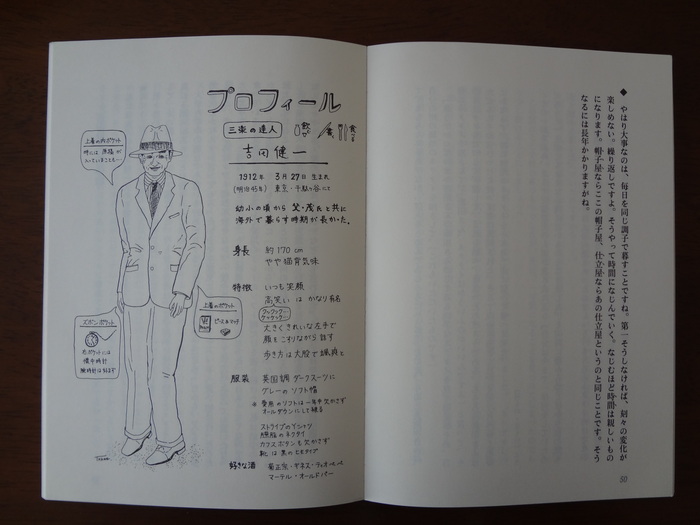 プロフィール
三楽の達人
吉田健一
1912年 3月27日 生まれ
(明治45年) 東京・千駄ヶ谷にて
幼少の頃から父・茂氏と共に
海外で暮らす時期が長かった。
身長 約170cm
やや猫背気味
特徴 いつも笑顔
高笑いは かなり有名
大きくきれいな左手で
顔をこすりながら話す
歩き方は大股で颯爽と
服装 英国調ダークスーツに
グレーのソフト帽
※ 愛用のソフトは一年中欠かさず
オールダウンにして被る
ストライプのYシャツ
臙脂のネクタイ
カフスボタンも欠かさず
靴は黒の
好きな酒 菊正宗・ギネス・ティオペペ
マーテル・オールドパー
上着の内ポケット
時には 原稿が
入っていることも…
上着のポケット
ピース&マッチ
ズボンポケット
右ポケットには
懐中時計
腕時計はせず
◆ やはり大事なのは、毎日を同じ調子で暮すことですね。第一そうしなければ、刻々の変化が
楽しめない。繰り返しですよ。そうやって時間になじんでいく。なじむほど時間は親しいもの
になります。帽子屋ならここの帽子屋、仕立屋ならあの仕立屋というのと同じことです。そう
なるには長年かかりますがね。
50